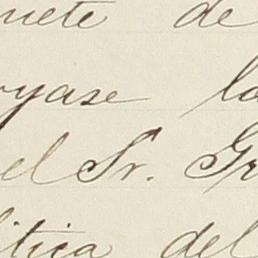 nete de
yase la
el Sr. Gr
itica del